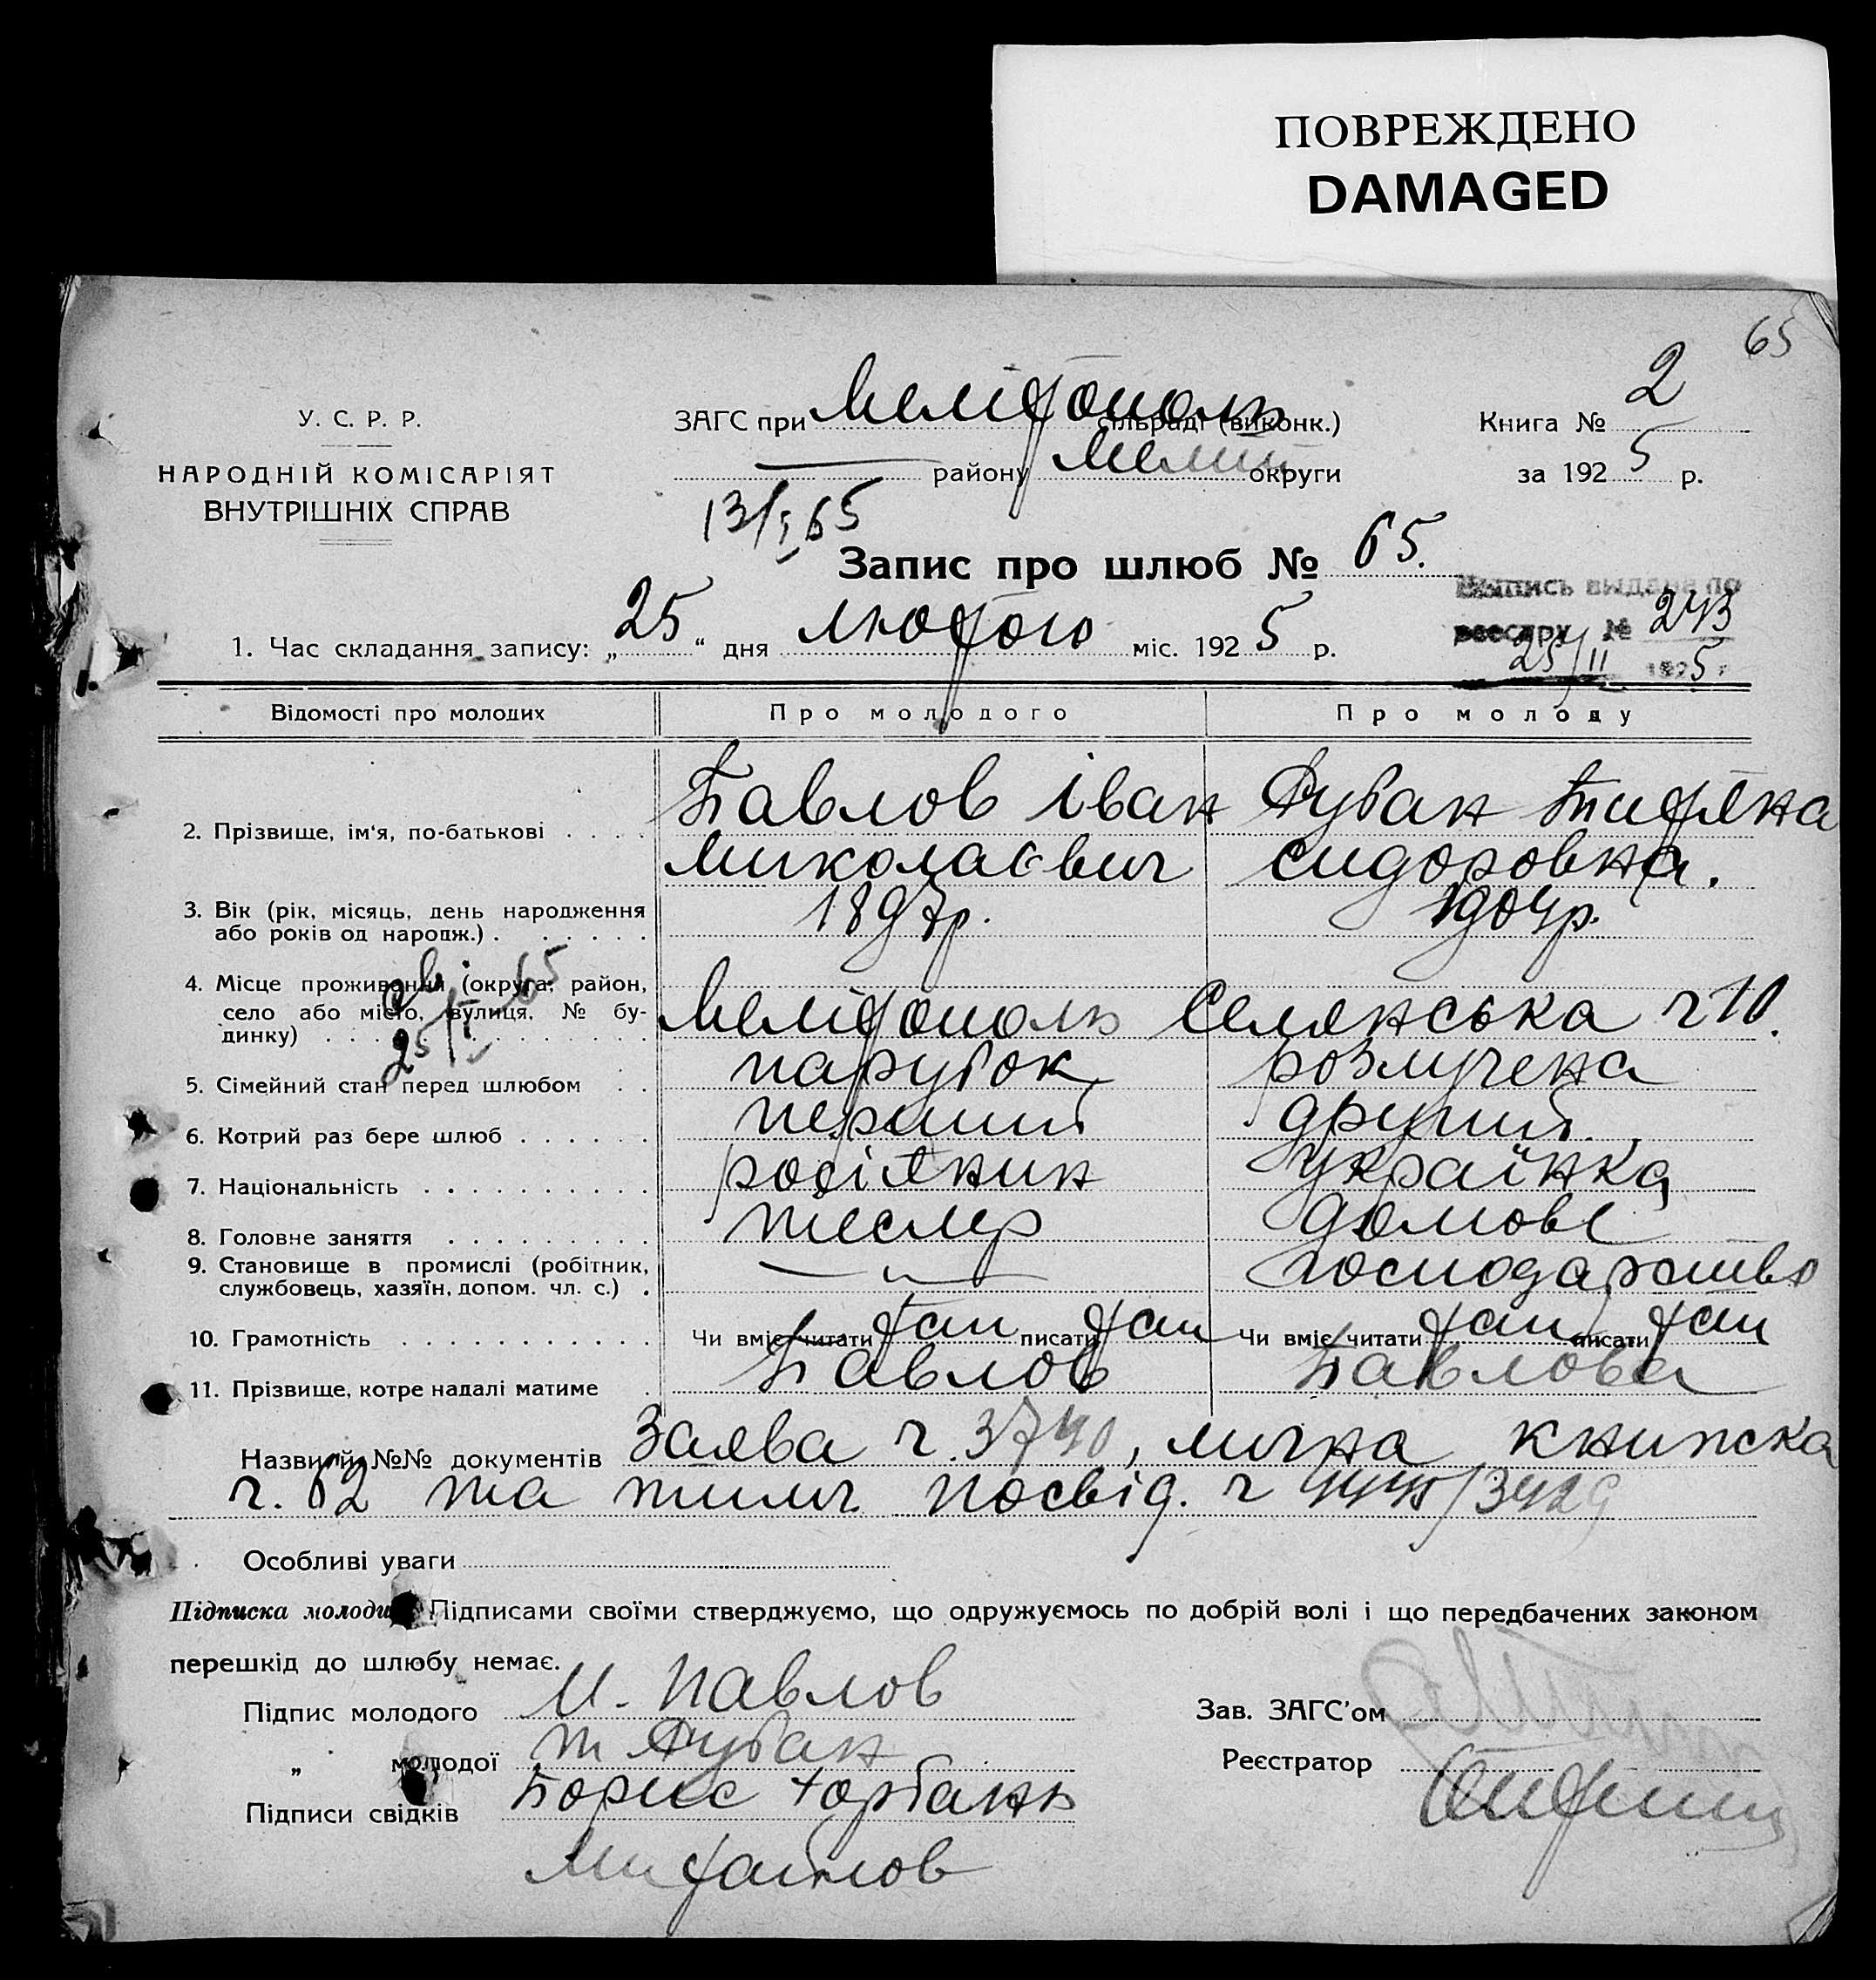 ПОВРЕЖДЕНО
DAMAGED
65
У. С. Р. Р.
НАРОДНІЙ КОМІСАРІЯТ
ВНУТРІШНІХ СПРАВ
ЗАГС при Мелітополь сільраді (виконк.)
району Меліт округи
Книга № 2
за 1925 р.
13/I 65
Запис про шлюб № 65.
Выпись выдана по
реестру № 243
25/II 1925 г
1. Час складання запису: „25“ дня лютого міс. 1925 р.
Відомості про молодих Про молодого Про молоду
2. Прізвище, ім'я, по-батькові . . . . Павлов Іван Дубан Титяна
Миколаєвич Сидоровна.
3. Вік (рік, місяць, день народження
або років од народж.) . . . . . . 1897р. 1904р.
св. 65
25/I
4. Місце проживання (округа, район,
село або місто, вулиця, № бу-
динку) . . . . . . . . . . . . Мелітополь Селянська ч 10.
5. Сімейний стан перед шлюбом . . парубок розлучена
6. Котрий раз бере шлюб . . . . . . перший другий
7. Національність . . . . . . . . . . росіянин українка
8. Головне заняття . . . . . . . . . тесляр домове
9. Становище в промислі (робітник,
службовець, хазяїн, допом. чл. с.) . — господарство
10. Грамотність . . . . . . . . . . . . Чи вміє читати так писати так Чи вміє читати так писати так
11. Прізвище, котре надалі матиме . Павлов Павлова
Назви й №№ документів Заява ч. 3740, лична книжка
ч. 62 та тимч. посвід. ч 4445/3429
Особливі уваги
Підписка молодих Підписами своїми стверджуємо, що одружуємось по добрій волі і що передбачених законом
перешкід до шлюбу немає.
Підпис молодого И. Павлов
Зав. ЗАГС'ом
„ молодої Т Дубан
Реєстратор
Підписи свідків Борис Горбань
Михайлов